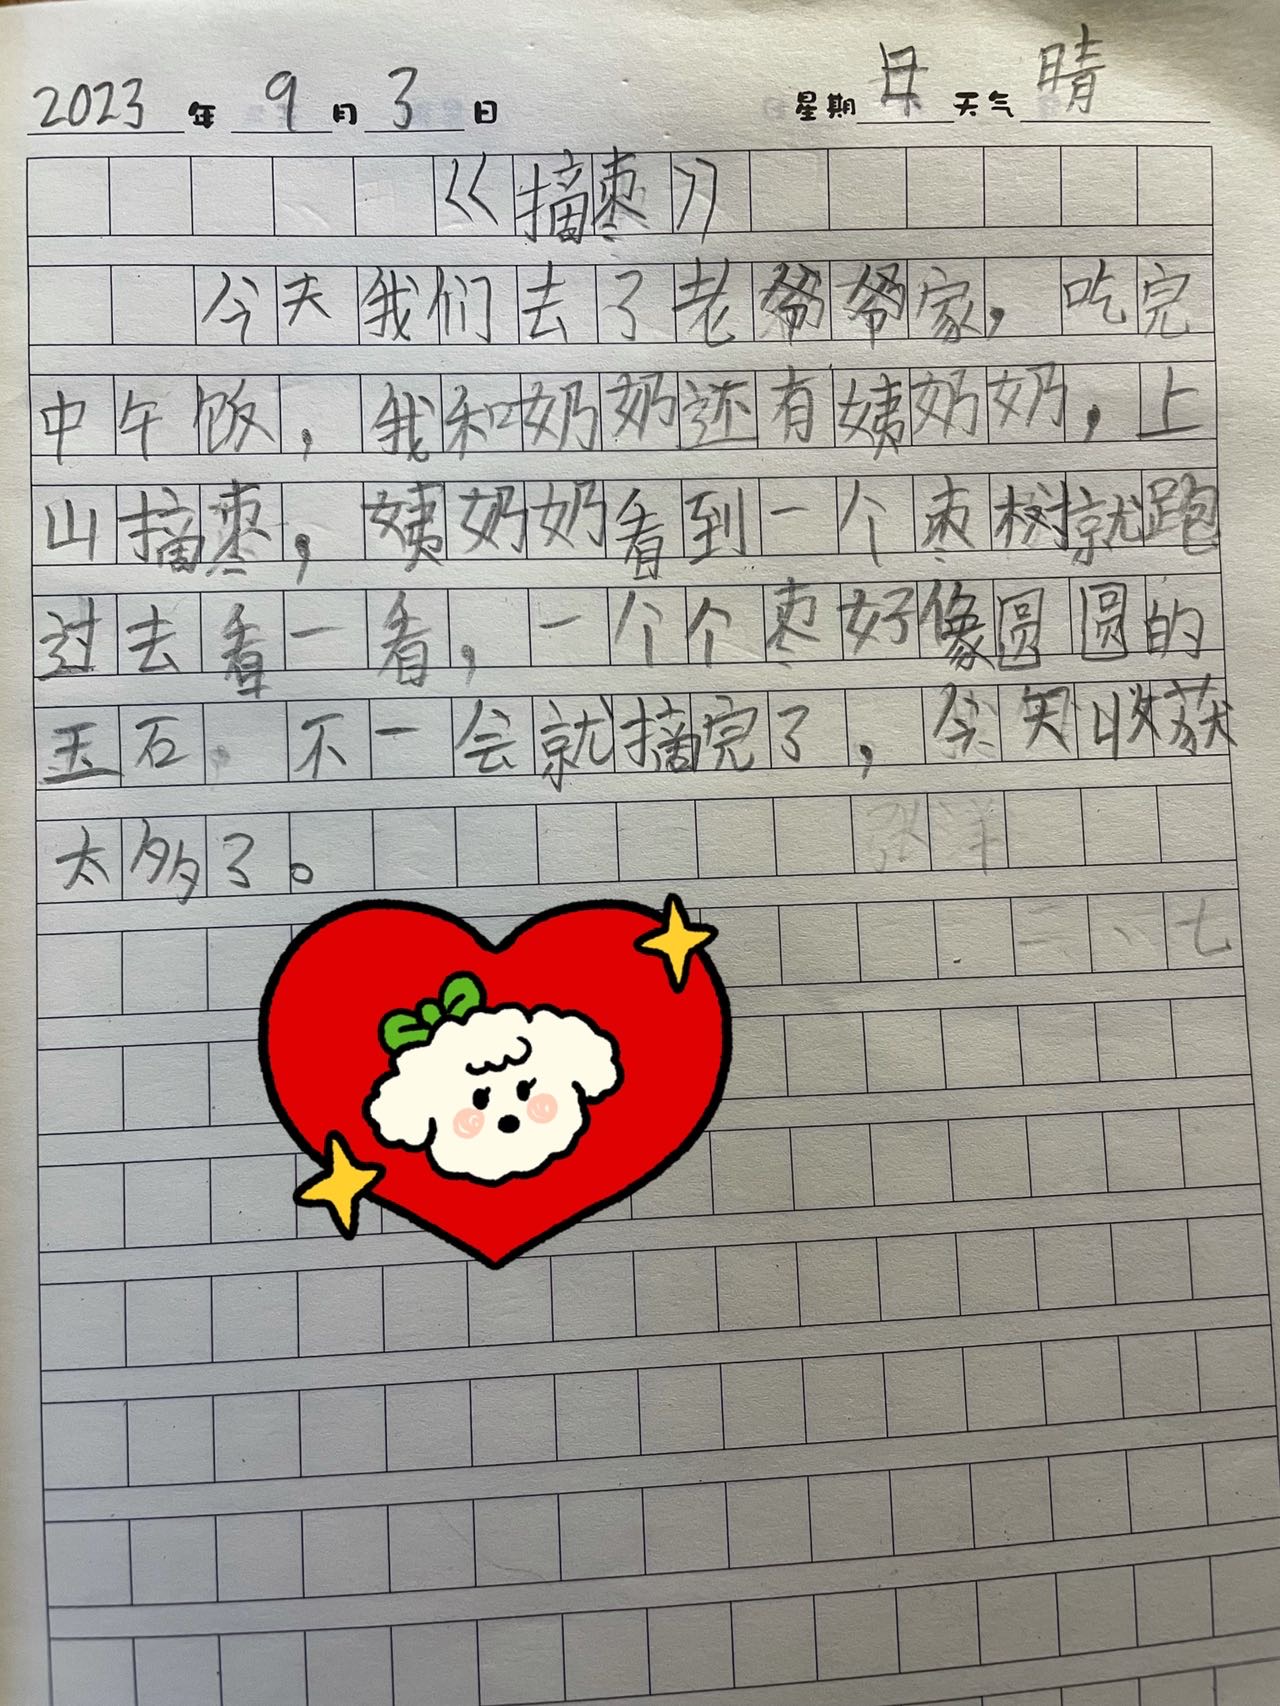 2023年9月3日 星期日 天气 晴
《摘枣》
今天我们去了老爷爷家，吃完
中午饭，我和奶奶还有姨奶奶，上
山摘枣，姨奶奶看到一个枣树就跑
过去看一看，一个个枣好像圆圆的
玉石，不一会就摘完了，今天收获
太多了。
张洋
二、七